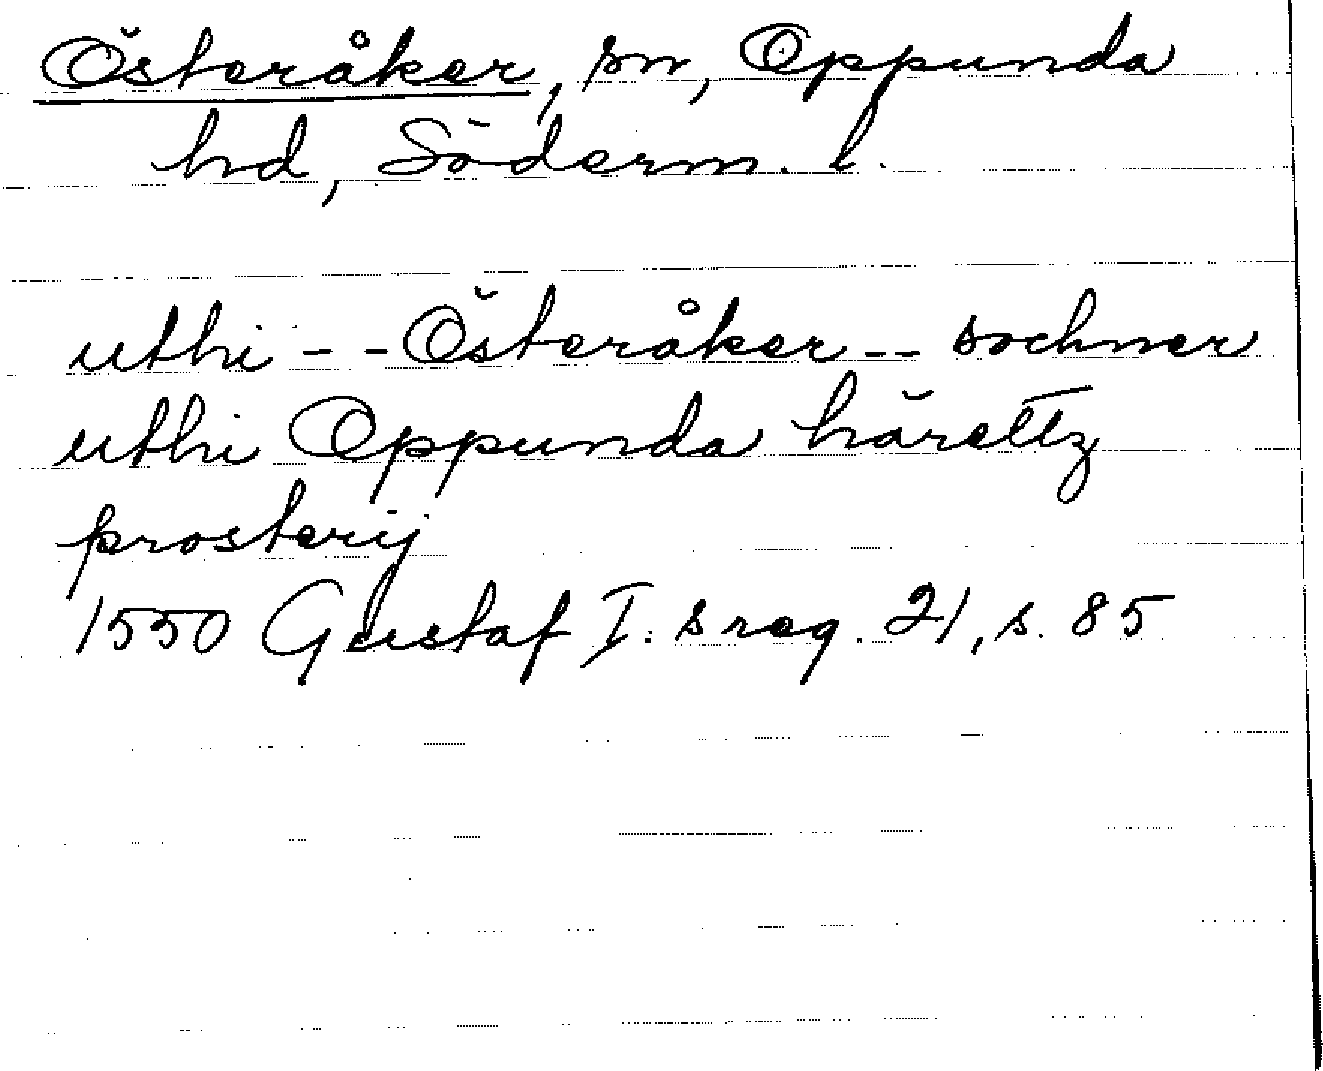 Österåker, sn, Oppunda
hd, Söderm. l.
uthi - - Österåker - - sochner
uthi Oppunda härettz
prosterij
1550 Gustaf I:s reg. 21, s. 85